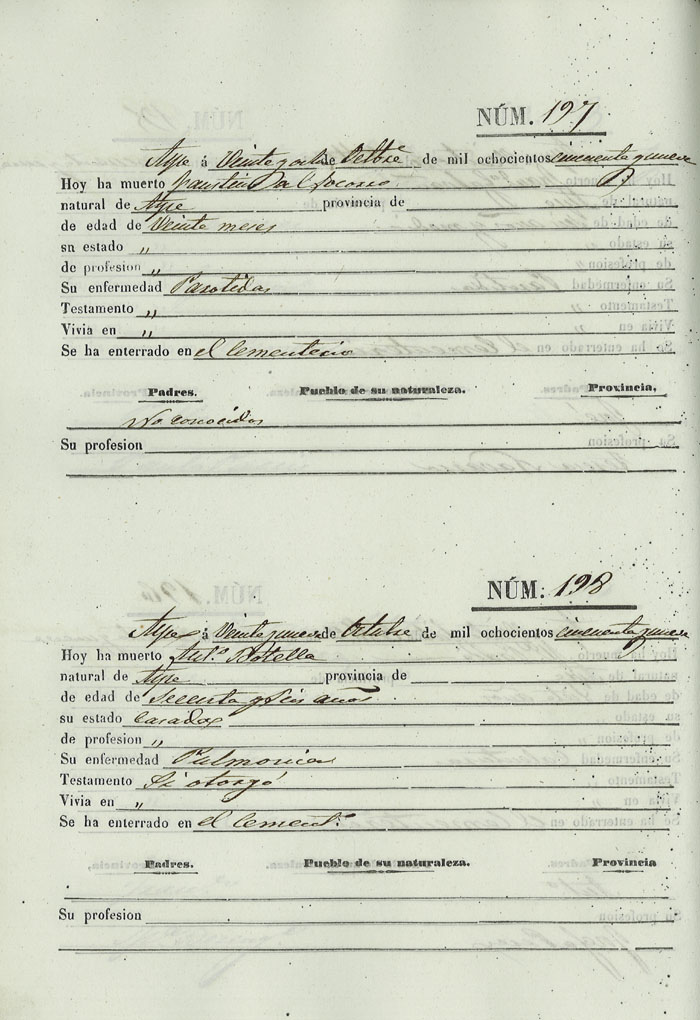 NÚM. 197
Aspe á Veinte y ocho de Octbre de mil ochocientos cincuenta y nueve
Hoy ha muerto Faustin
natural de Aspe provincia de
de edad de Veinte meses
sn estado „
de profesion „
Su enfermedad Parotidas
Testamento „
Vivia en „
Se ha enterrado en el Cementerio
Padres. Pueblo de su naturaleza. Provincia.
No conocidos
Su profesion
NÚM: 198
Aspe á Veinte y nueve de Octubre de mil ochocientos cincuenta y nueve
Hoy ha muerto Ant.ª Botella
natural de Aspe provincia de
de edad de Secenta y Seis años
su estado Casada
de profesion „
Su enfermedad Pulmonia
Testamento Si otorgó
Vivia en „
Se ha enterrado en el Cement.º
Padres. Pueblo de su naturaleza. Provincia
Su profesion